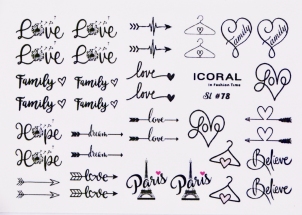 Love Love
Love Love
Family Family
Family Family
love
love
ICORAL
in Fashion Time
Sl #78
Family Family
Love
Love
Hope dream love
Hope dream love
love love
Paris Paris
Believe
Believe